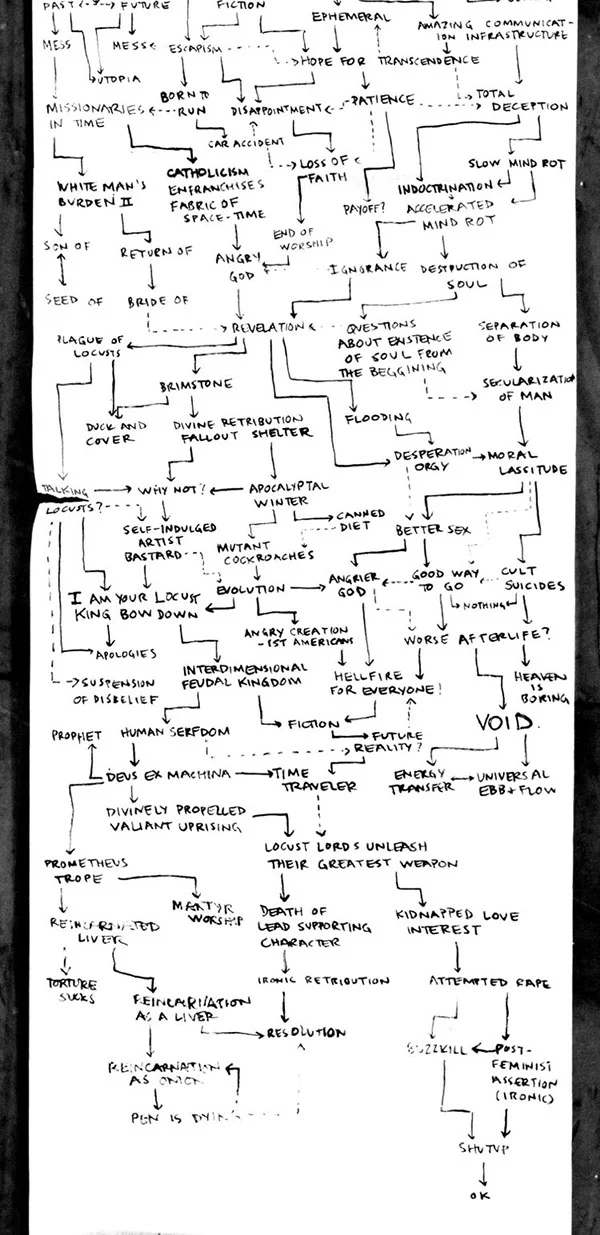 PAST
FUTURE
FICTION
EPHEMERAL
AMAZING COMMUNICAT-
ION INFRASTRUCTURE
MESS
MESS
ESCAPISM
HOPE FOR TRANSCENDENCE
UTOPIA
MISSIONARIES
IN TIME
BORN TO
RUN
DISAPPOINTMENT
PATIENCE
TOTAL
DECEPTION
CAR ACCIDENT
LOSS OF
FAITH
SLOW MIND ROT
WHITE MAN'S
BURDEN II
CATHOLICISM
ENFRANCHISES
FABRIC OF
SPACE-TIME
PAYOFF?
INDOCTRINATION
ACCELERATED
MIND ROT
SON OF
RETURN OF
ANGRY
GOD
END OF
WORSHIP
IGNORANCE
DESTRUCTION OF
SOUL
SEED OF
BRIDE OF
REVELATION
QUESTIONS
ABOUT EXISTENCE
OF SOUL FROM
THE BEGGINING
SEPARATION
OF BODY
PLAGUE OF
LOCUSTS
BRIMSTONE
SECULARIZATION
OF MAN
DUCK AND
COVER
DIVINE RETRIBUTION
FALLOUT SHELTER
FLOODING
DESPERATION
ORGY
MORAL
LASSITUDE
TALKING
LOCUSTS?
WHY NOT?
APOCALYPTAL
WINTER
SELF-INDULGED
ARTIST
BASTARD
MUTANT
COCKROACHES
CANNED
DIET
BETTER SEX
I AM YOUR LOCUST
KING BOW DOWN
EVOLUTION
ANGRIER
GOD
GOOD WAY
TO GO
CULT
SUICIDES
NOTHING
ANGRY CREATION
-IST AMERICANS
WORSE AFTERLIFE?
APOLOGIES
SUSPENSION
OF DISBELIEF
INTERDIMENSIONAL
FEUDAL KINGDOM
HELLFIRE
FOR EVERYONE!
HEAVEN
IS
BORING
PROPHET
HUMAN SERFDOM
FICTION
FUTURE
REALITY?
VOID.
DEUS EX MACHINA
TIME
TRAVELER
ENERGY
TRANSFER
UNIVERSAL
EBB + FLOW
DIVINELY PROPELLED
VALIANT UPRISING
LOCUST LORDS UNLEASH
THEIR GREATEST WEAPON
PROMETHEUS
TROPE
MARTYR
WORSHIP
DEATH OF
LEAD SUPPORTING
CHARACTER
KIDNAPPED LOVE
INTEREST
REINCARNATED
LIVER
TORTURE
SUCKS
REINCARNATION
AS A LIVER
IRONIC RETRIBUTION
ATTEMPTED RAPE
RESOLUTION
BUZZKILL
POST-
FEMINIST
ASSERTION
(IRONIC)
REINCARNATION
AS ONION
PEN IS DYING
SHUTUP
OK